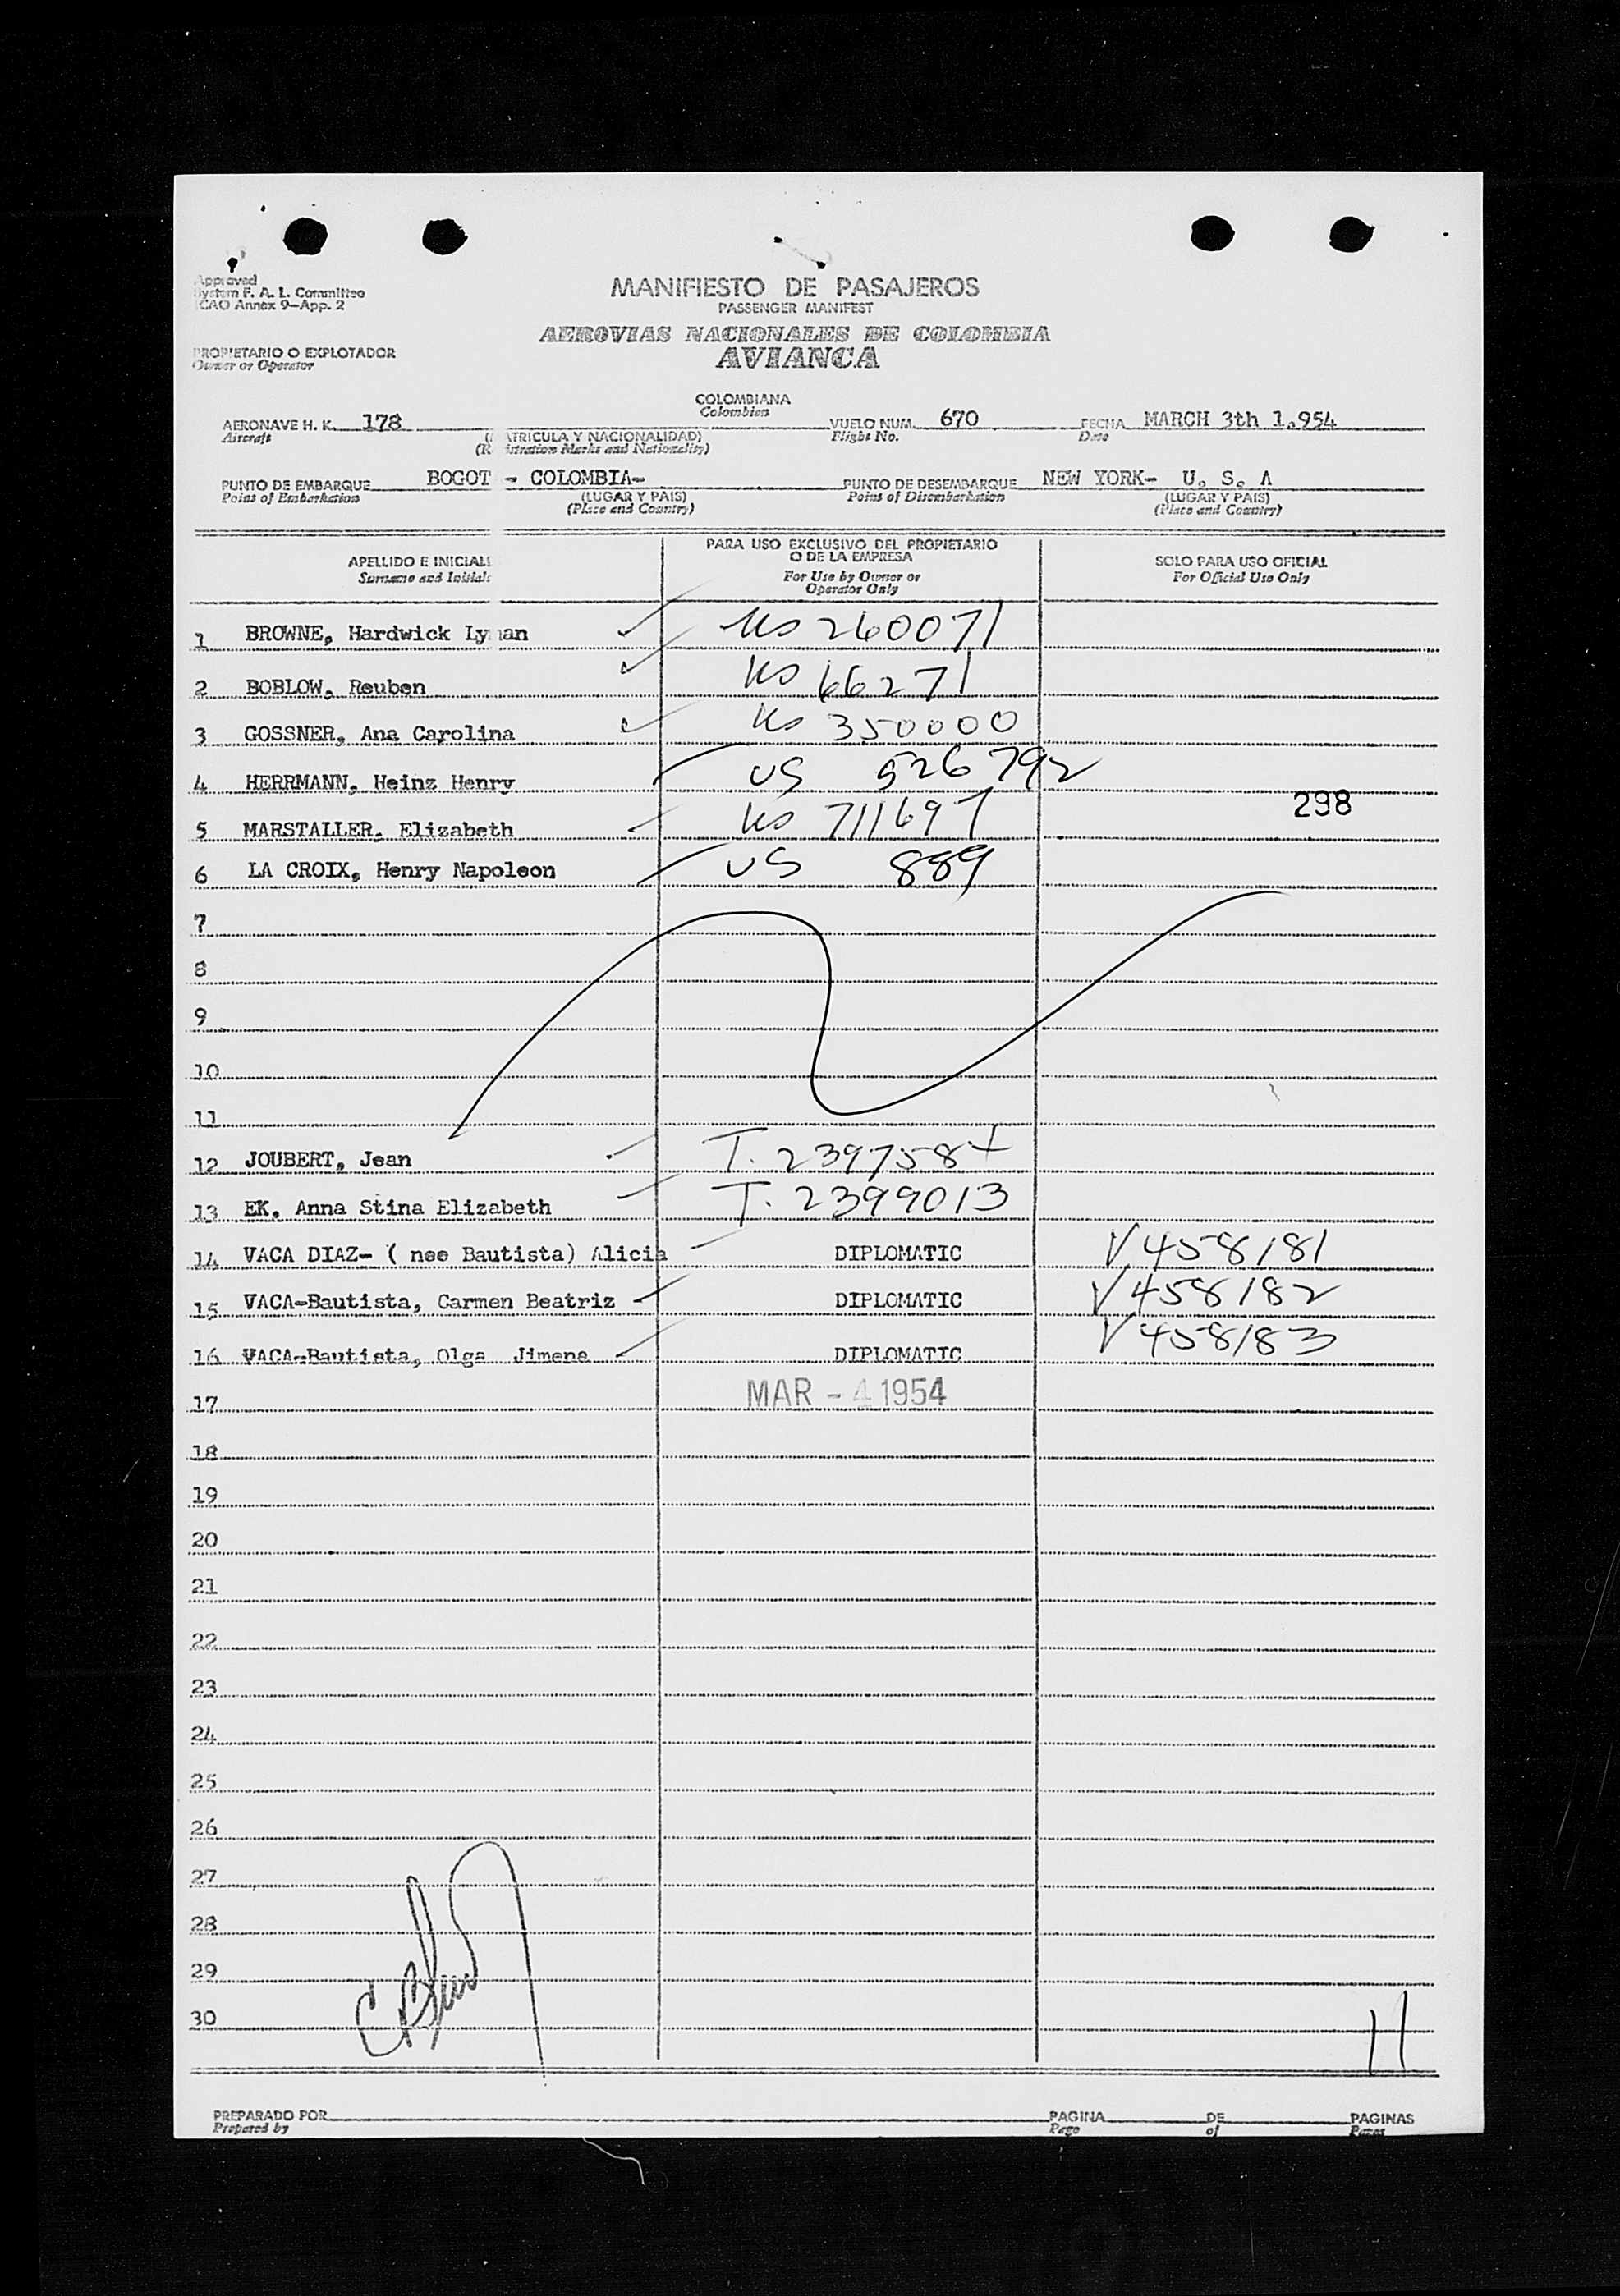 Approved
System F. A. L. Committee
ICAO Annex 9-App. 2
MANIFIESTO DE PASAJEROS
PASSENGER MANIFEST
AEROVIAS NACIONALES DE COLOMBIA
AVIANCA
PROPIETARIO O EXPLOTADOR
Owner or Operator
COLOMBIANA
Colombian
AERONAVE H. K. 178 VUELO NUM. 670 FECHA MARCH 3th 1.954
Aircraft (MATRICULA Y NACIONALIDAD) Flight No. Date
(Registration Marks and Nationality)
PUNTO DE EMBARQUE BOGOT - COLOMBIA- PUNTO DE DESEMBARQUE NEW YORK- U. S. A
Point of Embarkation (LUGAR Y PAIS) Point of Disembarkation (LUGAR Y PAIS)
(Place and Country) (Place and Country)
APELLIDO E INICIALES PARA USO EXCLUSIVO DEL PROPIETARIO O DE LA EMPRESA SOLO PARA USO OFICIAL
Surname and Initials For Use by Owner or Operator Only For Official Use Only
1 BROWNE, Hardwick Lyman US 260071
2 BOBLOW, Reuben US 66271
3 GOSSNER, Ana Carolina US 350000
4 HERRMANN, Heinz Henry US 526792
298
5 MARSTALLER, Elizabeth US 711697
6 LA CROIX, Henry Napoleon US 889
7
8
9
10
11
12 JOUBERT, Jean T. 2397584
13 EK, Anna Stina Elizabeth T. 2399013
14 VACA DIAZ- ( nee Bautista) Alicia DIPLOMATIC V458181
15 VACA-Bautista, Carmen Beatriz DIPLOMATIC V458182
16 VACA-Bautista, Olga Jimena DIPLOMATIC V458183
17 MAR - 4 1954
18
19
20
21
22
23
24
25
26
27
28
29
30
11
PREPARADO POR PAGINA DE PAGINAS
Prepared by Page of Pages